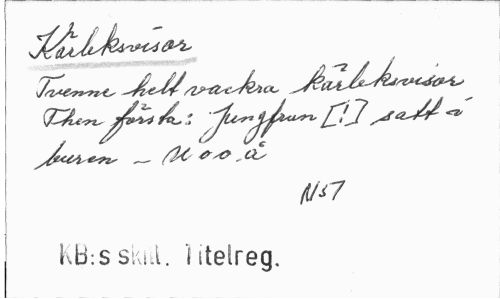 Kärleksvisor
Tvenne helt vackra kärleksvisor
Then första: Jungfrun [!] satt i
buren – U o o. å
N 57
KB:s skill. Titelreg.